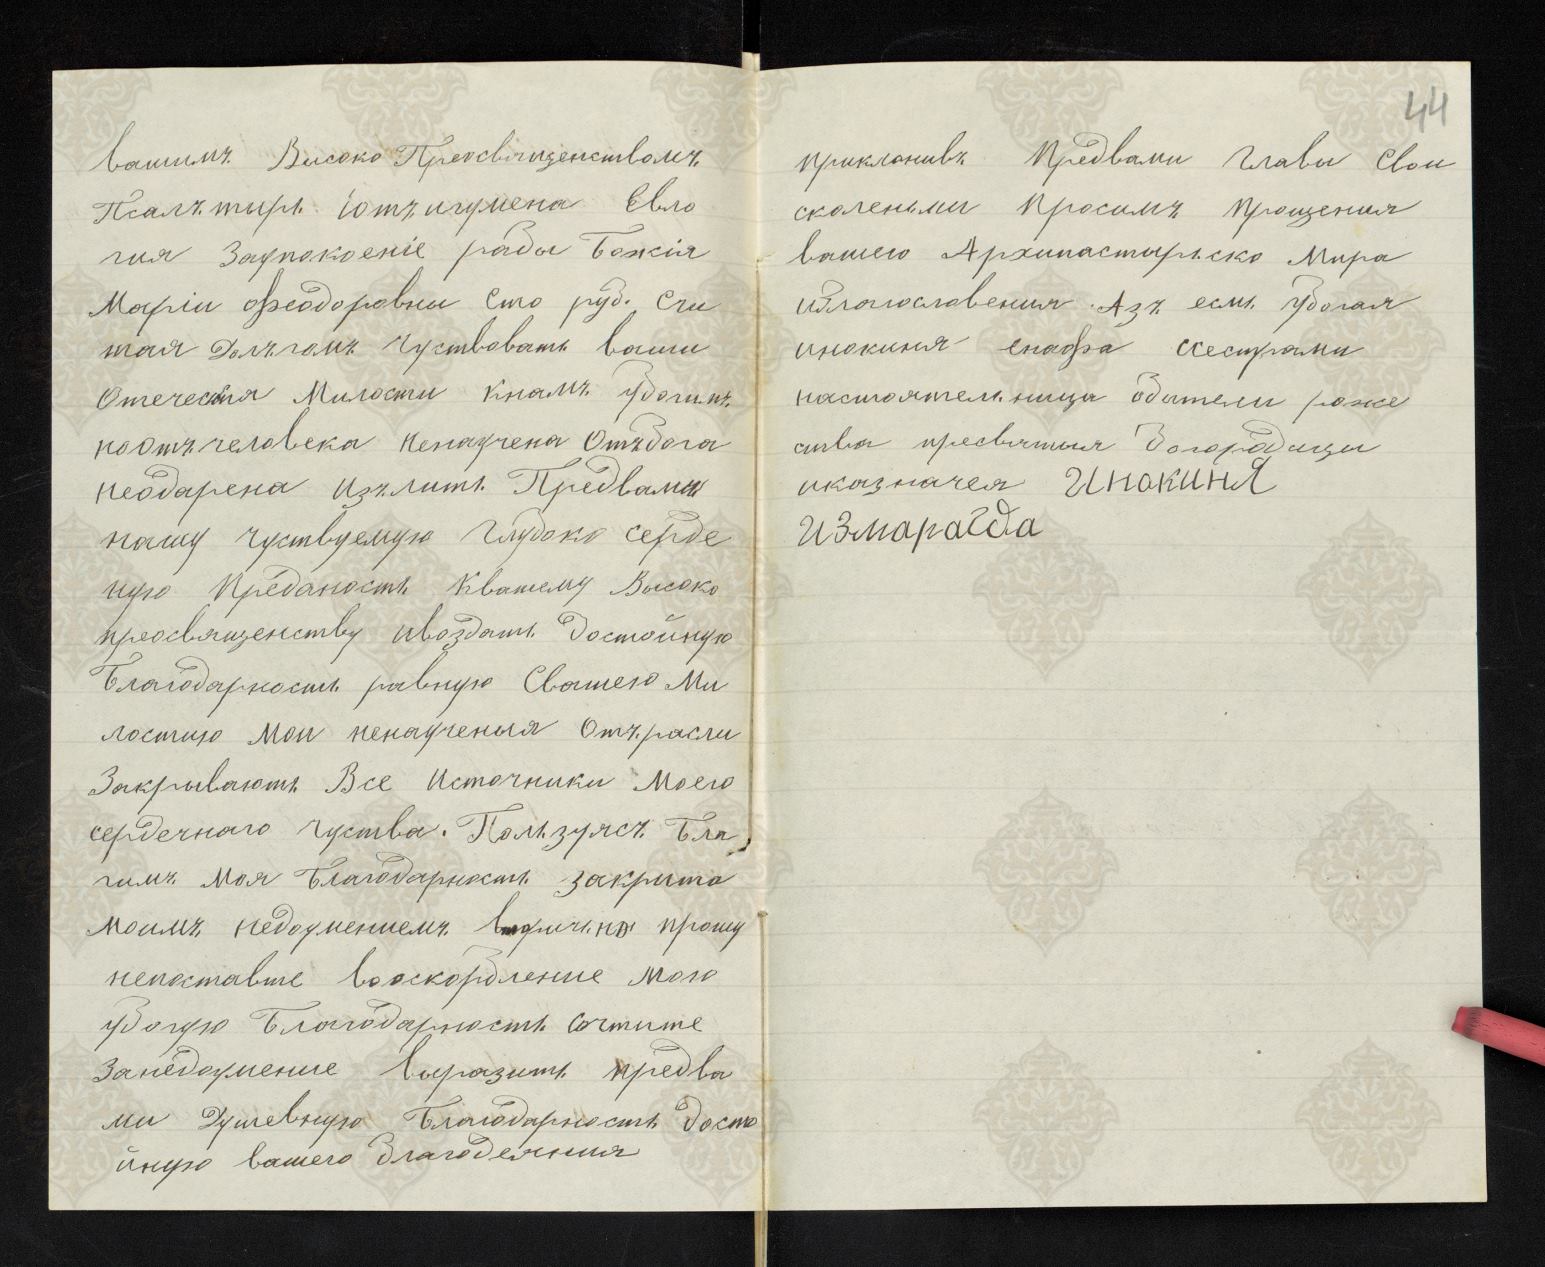 вашимъ Высоко Преосвященствомъ
Псалътирь. іотъ игумена Евло
гия Заупокоеніе рабы Божія
Маріи Феодоровны Сто руб. Счи
тая Долъгомъ Чуствовать ваши
Отечест‍ия Милости Кнамъ Убогимъ
но отъ человека ненаучена Отъ бога
неодарена Изълить Предвами
нашу чуствуемую Глубоко серде
ную Преданость Квашему Высоко
преосвященству ивоздать Достойную
Благодарность равную Свашею Ми
лостию Мои ненаученыя Отъ расли
Закрывають Все Источники Моего
сердечнаго Чуства. Пользуясъ Бла
гимъ Моя Благодарность закрыта
Моимъ недоумениемъ прошу
непоставте вооскорбление Мою
Убогую Благодарность Сочтите
Занедоумение выразить предва
ми Душевную Благодарность Досто
йную вашего Благодеяния
44
Приклонивъ Предвами Главы Свои
сколеньми Просимъ Прощения
вашего Архипастырьско Мира
иБлагословения. Азъ есмь Убогая
инокиня енафа ссестрами
настоятельница обители роже
ства пресвятыя Богородицы
иказначея Инокиня
Измарагда